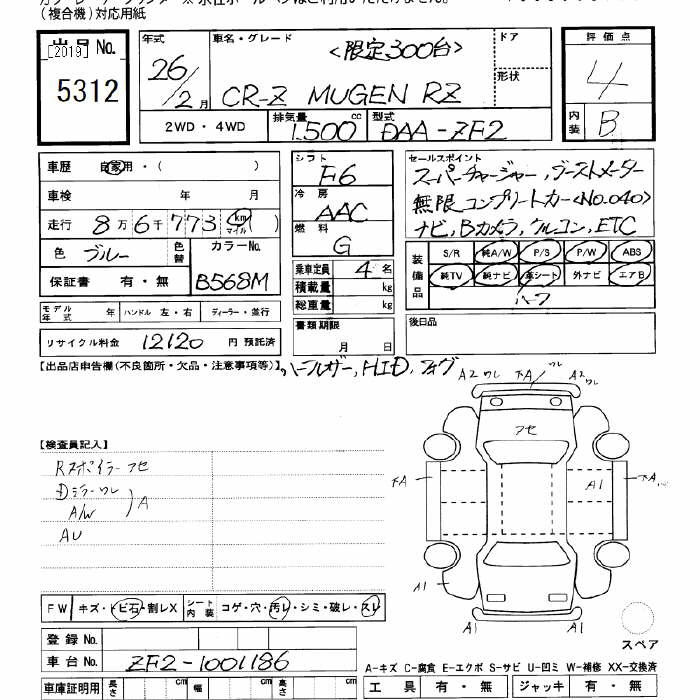 (複合機)対応用紙
出品 No.
[2019]
5312
年式
26/2月
車名・グレード
<限定300台>
CR-Z MUGEN RZ
ドア
形状
評価点
4
内装
B
2WD・4WD
排気量
1.500 cc
型式
DAA-ZF2
車歴 自家用・( )
車検 年 月
走行 8万6千773 km マイル ( )
色 ブルー
色替
カラーNo.
B568M
保証書 有・無
シフト
F6
冷房
AAC
燃料
G
乗車定員 4 名
積載量 kg
総重量 kg
書類期限
月 日
セールスポイント
スーパーチャージャー, ブーストメーター
無限コンプリートカー<No.040>
ナビ, Bカメラ, クルコン, ETC
装備品
S/R 純A/W P/S P/W ABS
純TV 純ナビ 革シート 外ナビ エアB
ハーフ
後日品
モデル年式 年 ハンドル 左・右 ディーラー・並行
リサイクル料金 12120 円 預託済
【出品店申告欄(不良箇所・欠品・注意事項等)】
ハーフレザー, HID, フォグ
【検査員記入】
Rスポイラーアセ
Dミラーワレ
A/W
A
AU
A2ワレ
下A
ワレ
A2
ワレ
アセ
下A
A1
下A
A1
A1
A1
スペア
FW キズ・トビ石・割レX
シート内装 コゲ・穴・汚レ・シミ・破レ・スレ
登録 No.
車台 No. ZF2-1001186
車庫証明用 長さ cm 幅 cm 高さ cm
A-キズ C-腐食 E-エクボ S-サビ U-凹ミ W-補修 XX-交換済
工具 有・無 ジャッキ 有・無